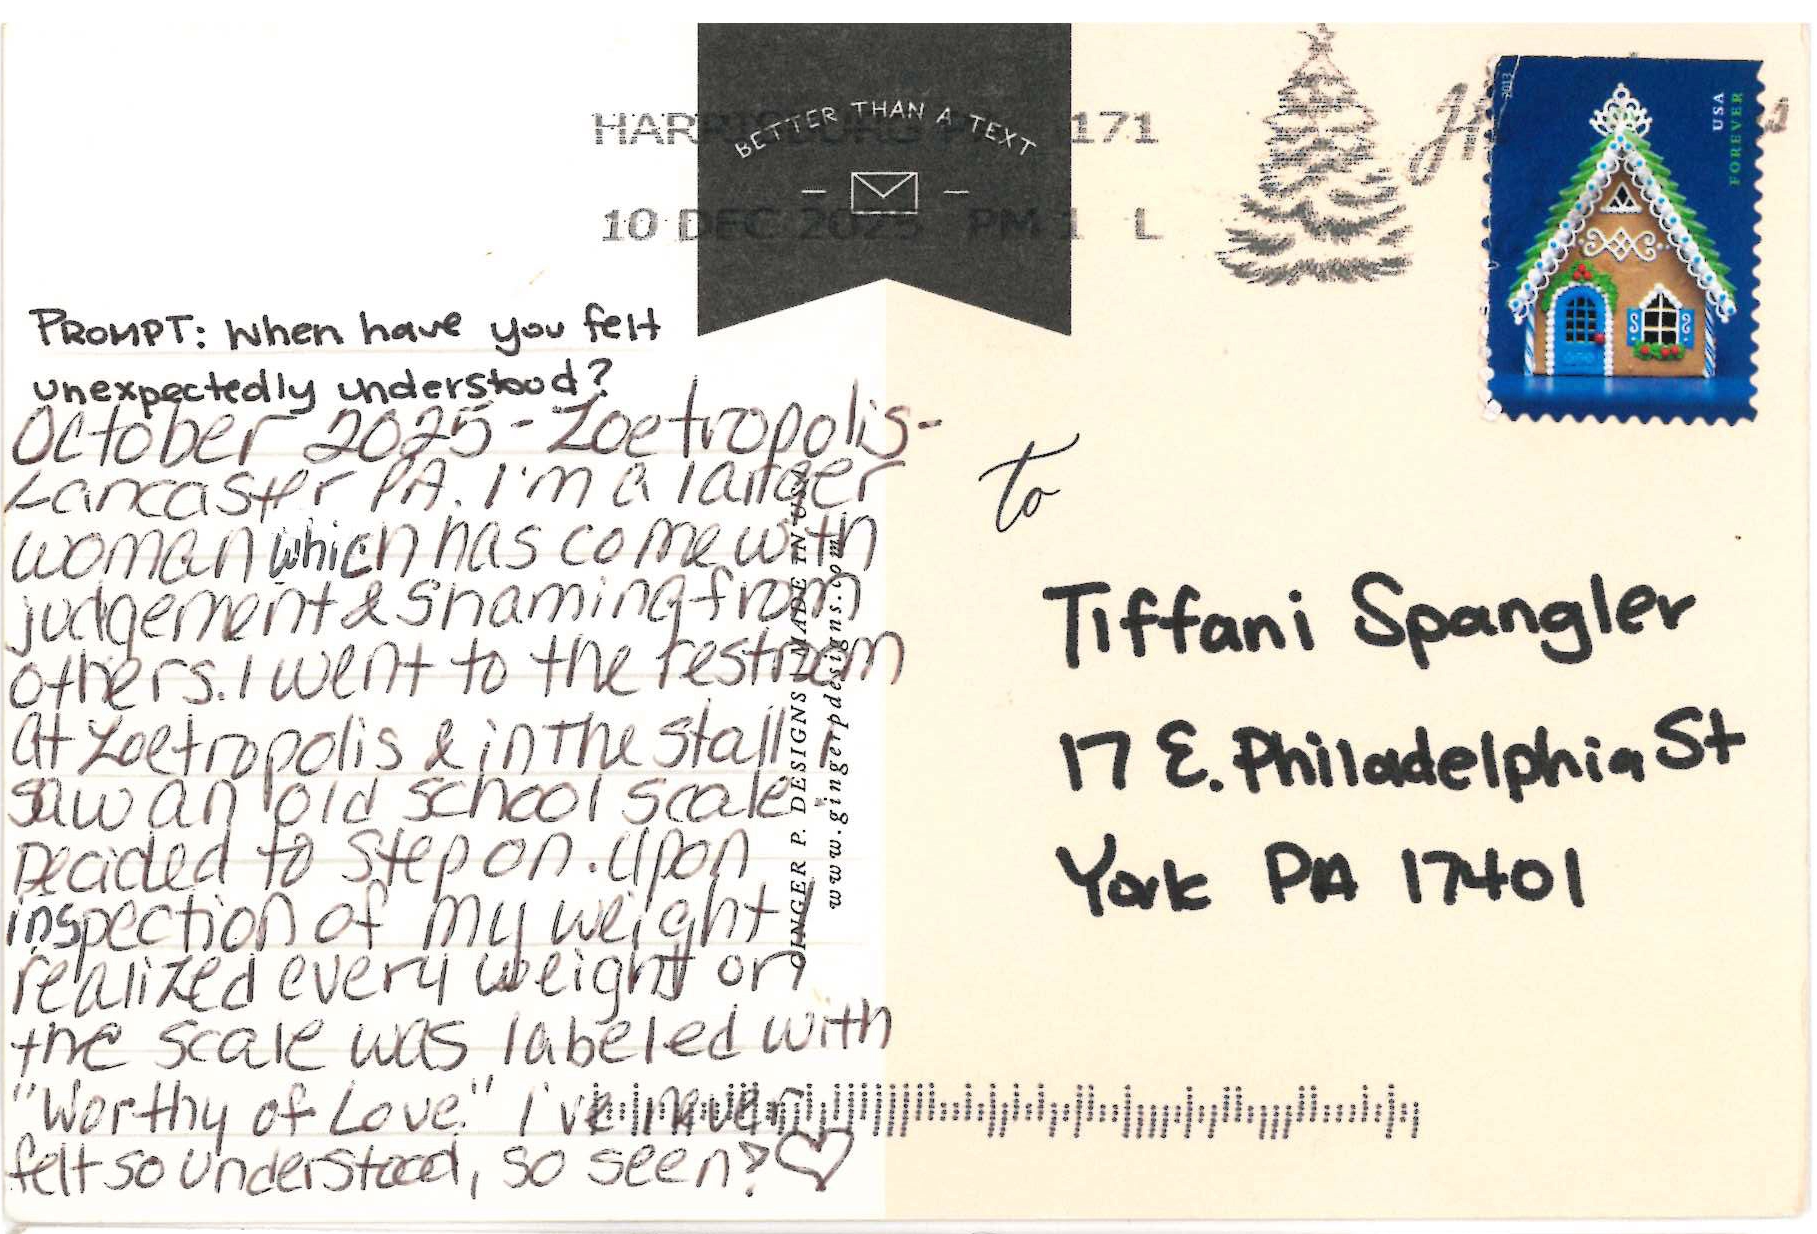 HARRISBURG PA 171
10 DEC 2025 PM 1 L
BETTER THAN A TEXT
2013
USA
FOREVER
PROMPT: When have you felt
unexpectedly understood?
October 2025 - Zoetropolis -
Lancaster PA. I'm a larger
woman which has come with
judgement & shaming from
others. I went to the restroom
at Zoetropolis & in the stall I
saw an old school scale
Decided to step on. Upon
inspection of my weight I
realized every weight on
the scale was labeled with
"Worthy of Love." I've never
felt so understood, so seen? ♡
GINGER P. DESIGNS | MADE IN USA
www.gingerpdesigns.com
to
Tiffani Spangler
17 E. Philadelphia St
York PA 17401